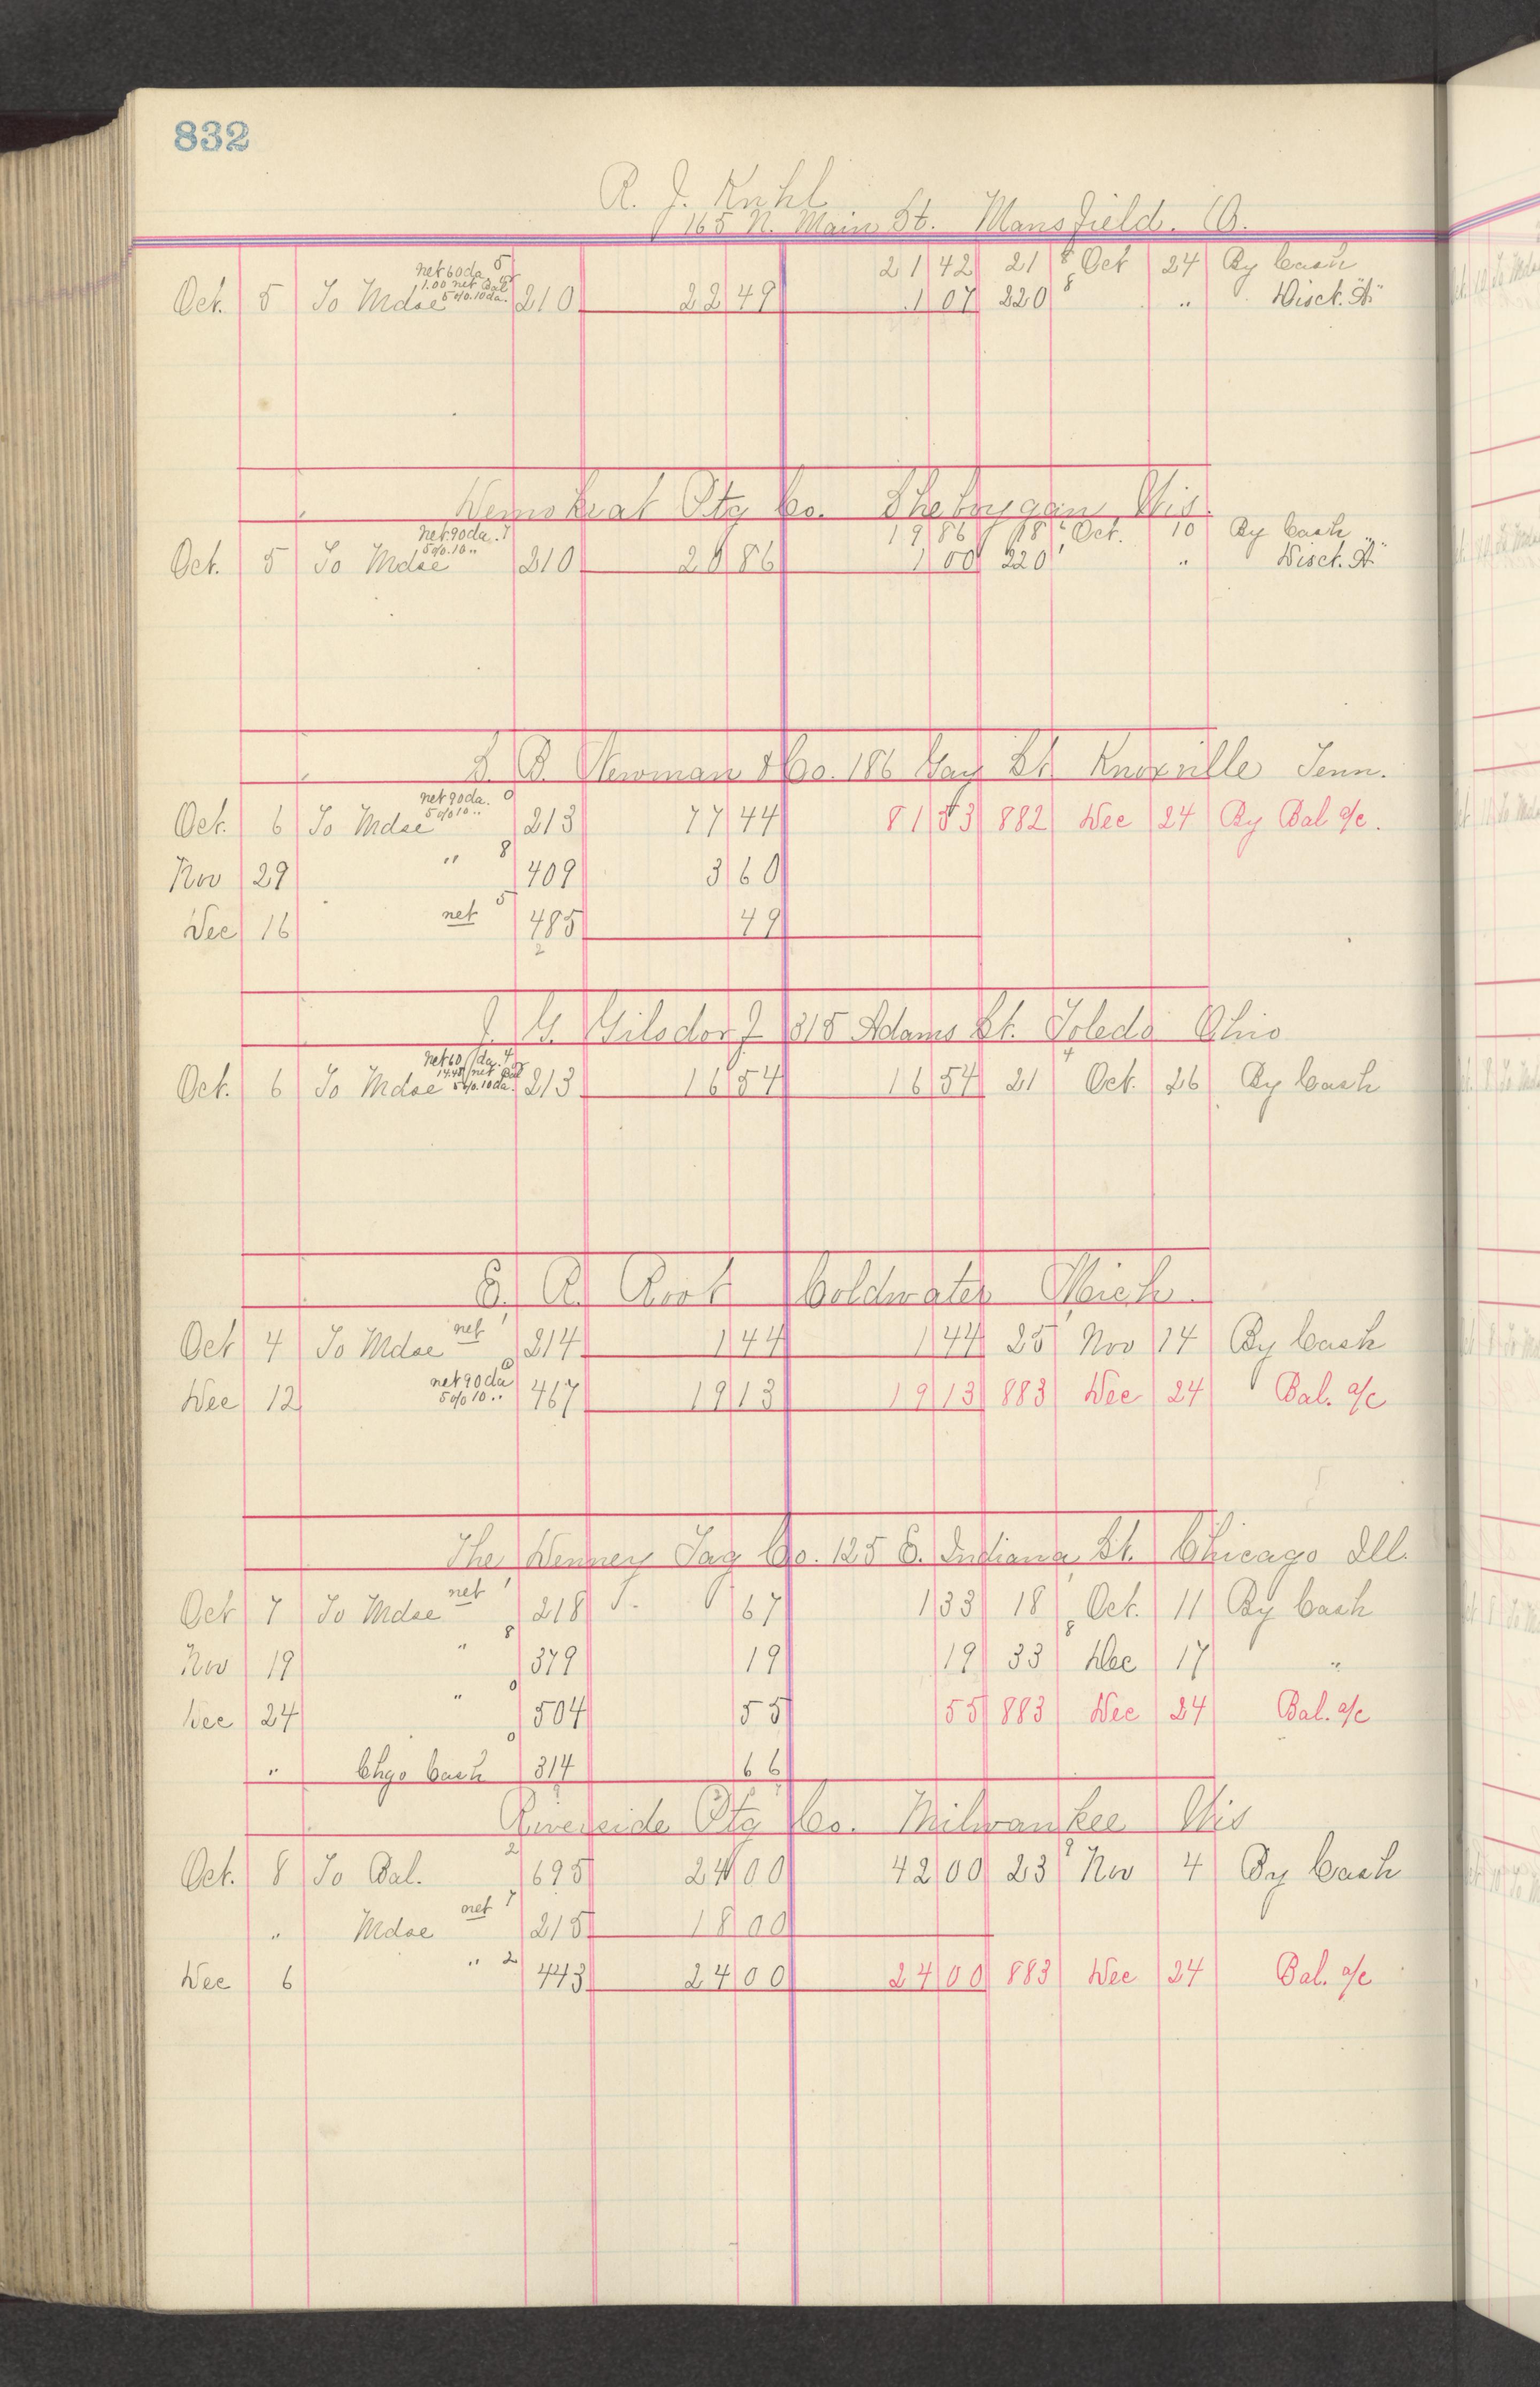 832
R. J. Kuhl
165 N. Main St. Mansfield. O.
net 60 da. 5 21 42 21 8 Oct 24 By Cash
1.00 net Bal
Oct. 5 To Mdse 5% 10 da. 210 22 49 1 07 220 8 " Disct. "A"
Demokrat Ptg Co. Sheboygan, Wis.
net 90 da. 7 19 86 18 Oct. 10 By Cash
Oct. 5 To Mdse 5% 10 " 210 20 86 1 00 220 1 " Disct. "A"
S. B. Newman & Co. 186 Gay St Knoxville Tenn.
net 90 da. 0
Oct. 6 To Mdse 5% 10 " 213 77 44 81 53 882 Dec 24 By Bal a/c.
Nov 29 " 8 409 3 60
Dec 16 net 5 485 49
2
J. G. Gilsdorf 315 Adams St. Toledo Ohio
net 60 da. 4
14.45 net Bal
Oct. 6 To Mdse 5% 10 da. 213 16 54 16 54 21 4 Oct. 26 By Cash
E. A. Root Coldwater Mich
Oct 4 To Mdse net 1 214 1 44 1 44 25 1 Nov 14 By Cash
net 90 da 0
Dec 12 5% 10 " 467 19 13 19 13 883 Dec 24 Bal. a/c
The Denney Tag Co. 125 E. Indiana St. Chicago Ill.
Oct 7 To Mdse net 1 218 67 1 33 18 Oct. 11 By Cash
Nov 19 " 8 379 19 19 33 8 Dec 17 "
Dec 24 " 0 504 55 55 883 Dec 24 Bal. a/c
" Chgo Cash 0 314 66
Riverside Ptg Co. Milwaukee Wis
Oct. 8 To Bal. 2 695 24 00 42 00 23 9 Nov 4 By Cash
" Mdse net 7 215 18 00
Dec 6 " 2 443 24 00 24 00 883 Dec 24 Bal. a/c